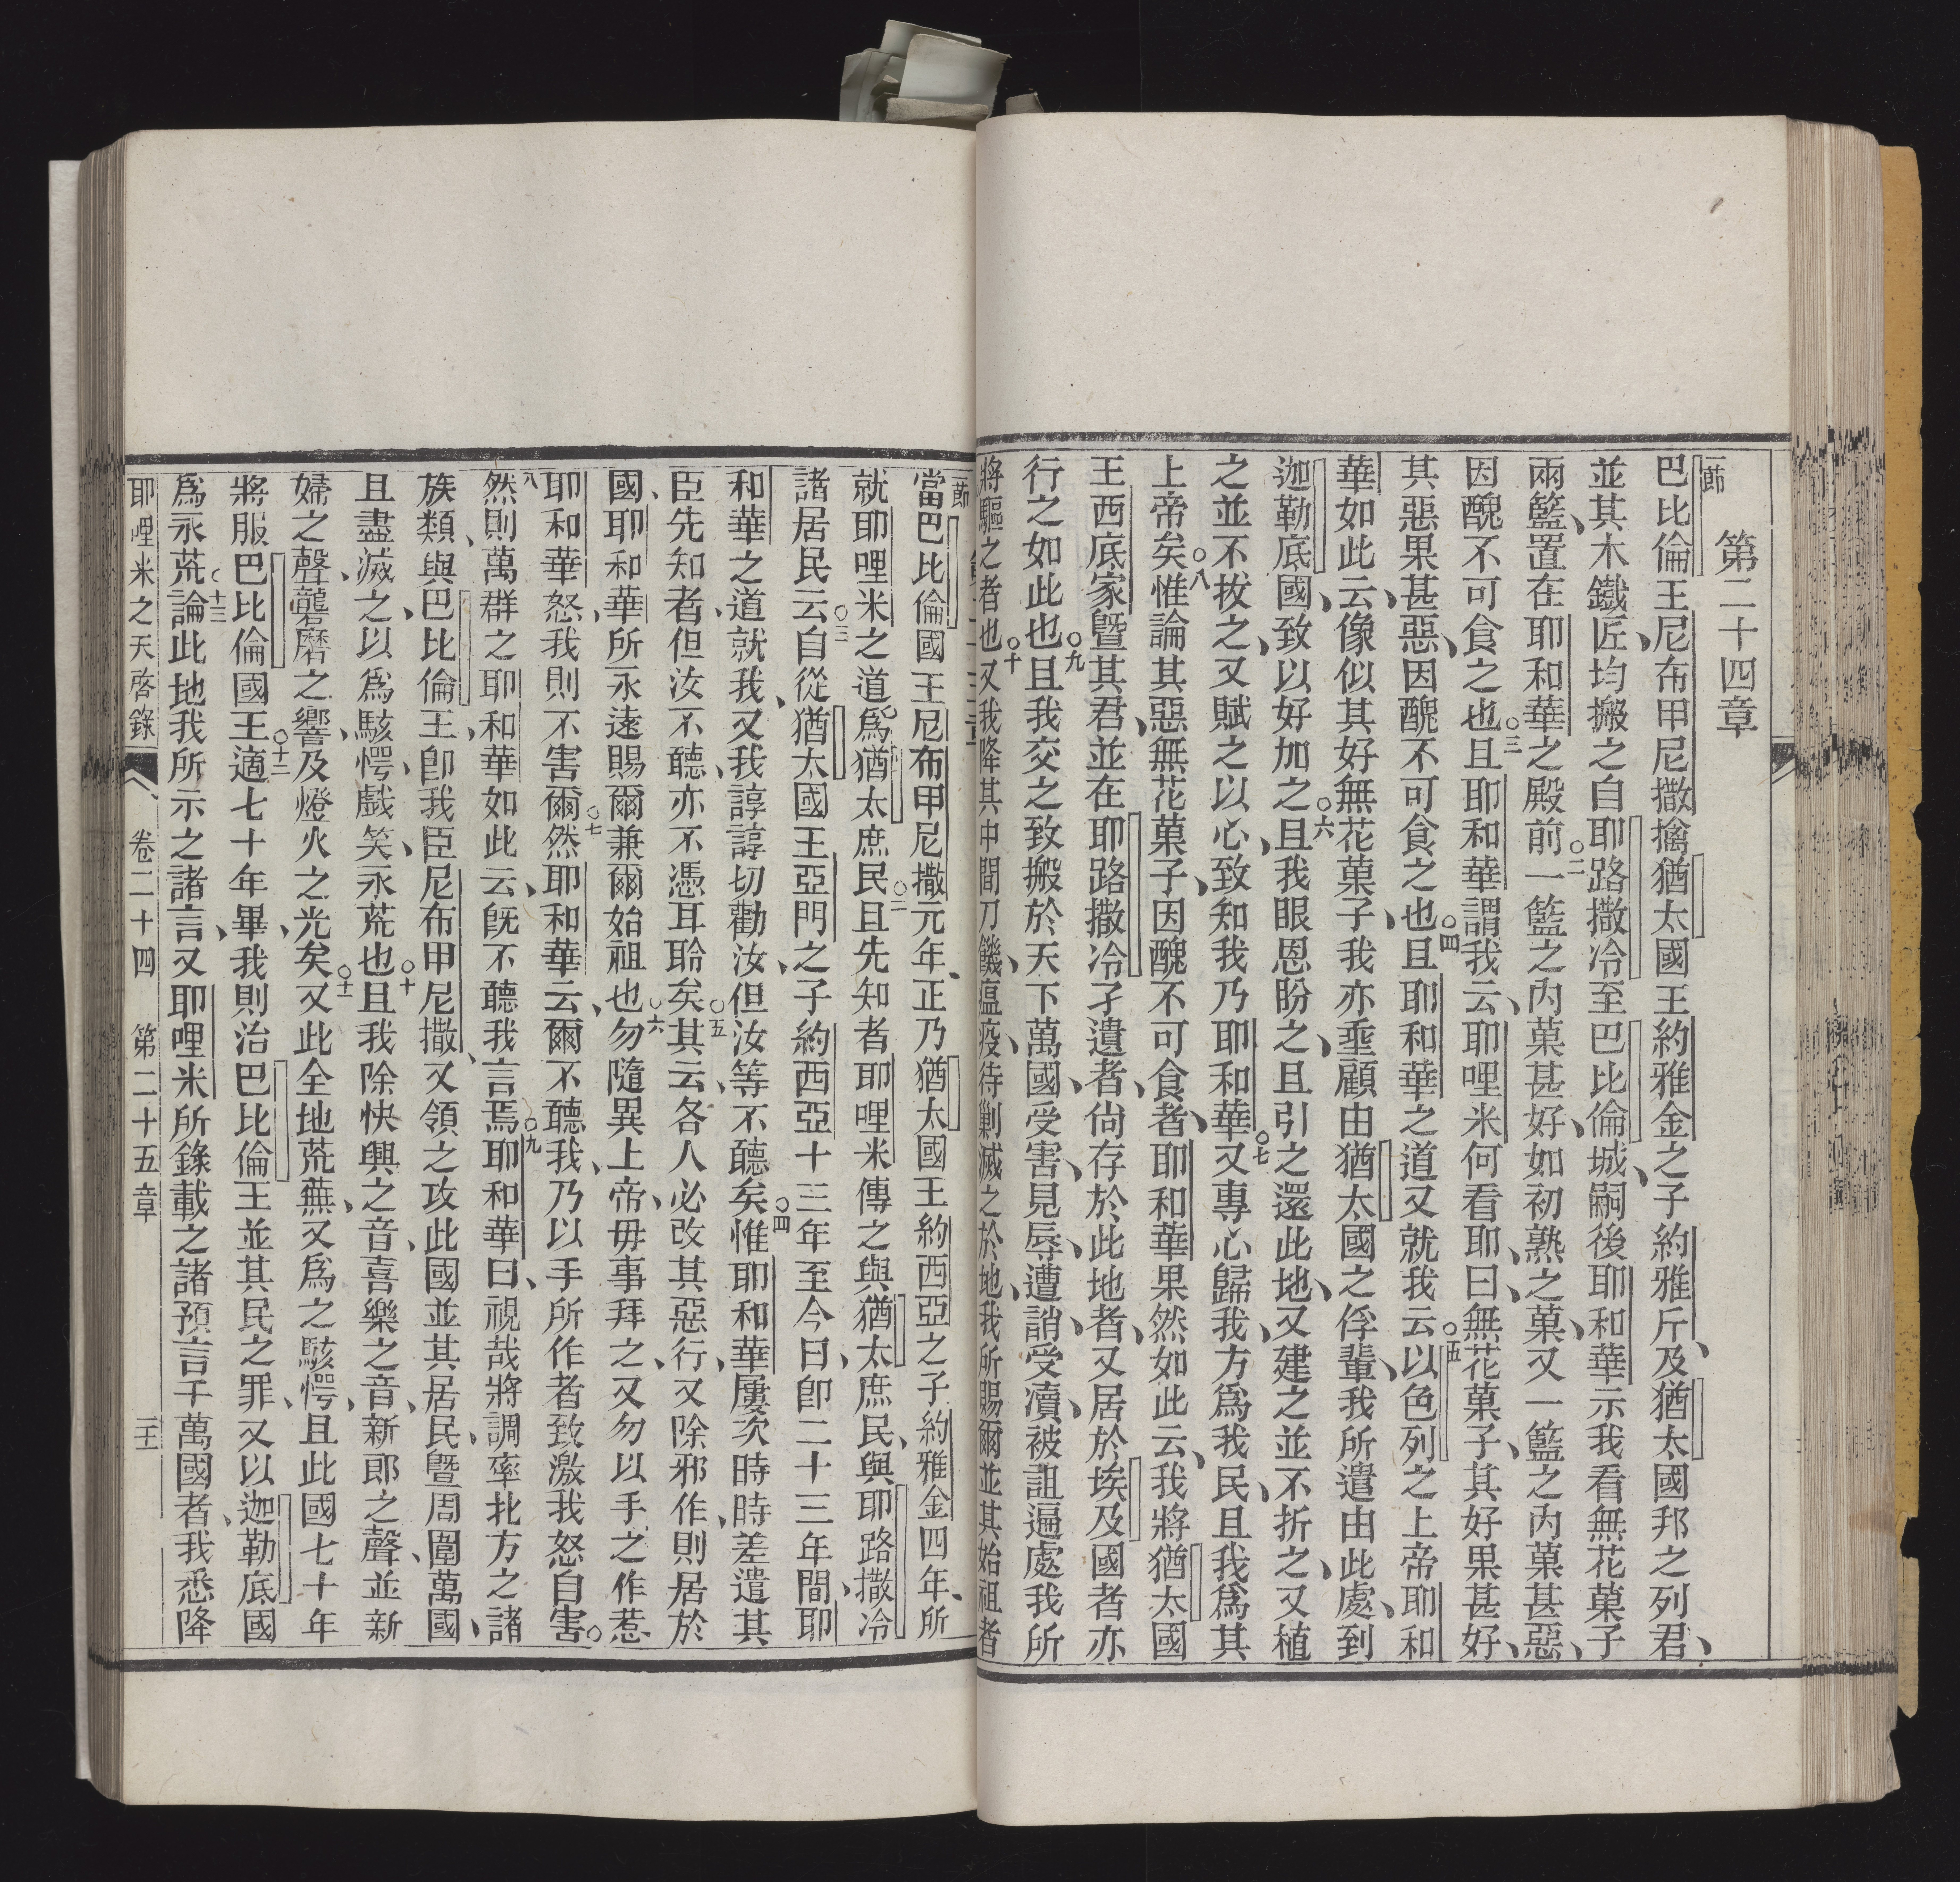 第二十四章
一節
巴比倫王尼布甲尼撒擒猶太國王約雅金之子約雅斤及猶太國邦之列君、
並其木鐵匠、均搬之自耶路撒冷至巴比倫城、嗣後耶和華示我看無花菓子
兩籃、置在耶和華之殿前○二一籃之內菓甚好、如初熟之菓、又一籃之內菓甚惡、
因醜不可食之也○三且耶和華謂我云、耶哩米何看耶、曰、無花菓子、其好果甚好、
其惡果甚惡、因醜不可食之也○四且耶和華之道又就我云○五以色列之上帝耶和
華如此云、像似其好無花菓子、我亦垂顧由猶太國之俘輩、我所遣由此處、到
迦勒底國、致以好加之○六且我眼恩盼之、且引之還此地、又建之並不折之、又植
之並不拔之、又賦之以心、致知我乃耶和華○七又專心歸我、方為我民、且我為其
上帝矣○八惟論其惡無花菓子、因醜不可食者、耶和華果然如此云、我將猶太國
王西底家曁其君、並在耶路撒冷孑遺者、尙存於此地者、又居於埃及國者亦
行之如此也○九且我交之致搬於天下萬國、受害、見辱、遭誚、受凟、被詛遍處我所
將驅之者也○十又我降其中間刀饑、瘟疫、待剿滅之於地、我所賜爾並其始祖者
一節
當巴比倫國王尼布甲尼撒元年、正乃猶太國王約西亞之子約雅金四年、所
就耶哩米之道、為猶太庶民○二且先知者耶哩米傳之與猶太庶民、與耶路撒冷
諸居民云○三自從猶太國王亞門之子約西亞十三年至今日、卽二十三年間、耶
和華之道就我、又我諄諄切勸汝、但汝等不聽矣○四惟耶和華屢次時時差遣其
臣先知者、但汝不聽、亦不憑耳聆矣○五其云、各人必改其惡行、又除邪作、則居於
國、耶和華所永遠賜爾兼爾始祖也○六勿隨異上帝、毋事拜之、又勿以手之作惹
耶和華怒、我則不害爾○七然耶和華云、爾不聽我、乃以手所作者致激我怒自害○
八然則萬群之耶和華如此云、旣不聽我言焉○九耶和華曰、視哉將調率北方之諸
族類、與巴比倫王、卽我臣尼布甲尼撒、又領之攻此國並其居民、曁周圍萬國、
且盡滅之、以為駭愕、戲笑、永荒也○十且我除快興之音、喜樂之音、新郎之聲、並新
婦之聲、礱磨之響、及燈火之光矣○十一又此全地荒蕪、又為之駭愕、且此國七十年
將服巴比倫國王○十二適七十年畢、我則治巴比倫王並其民之罪、又以迦勒底國
為永荒○十三論此地我所示之諸言、又耶哩米所錄載之諸預言千萬國者、我悉降
耶哩米之天啓錄 卷二十四 第二十五章